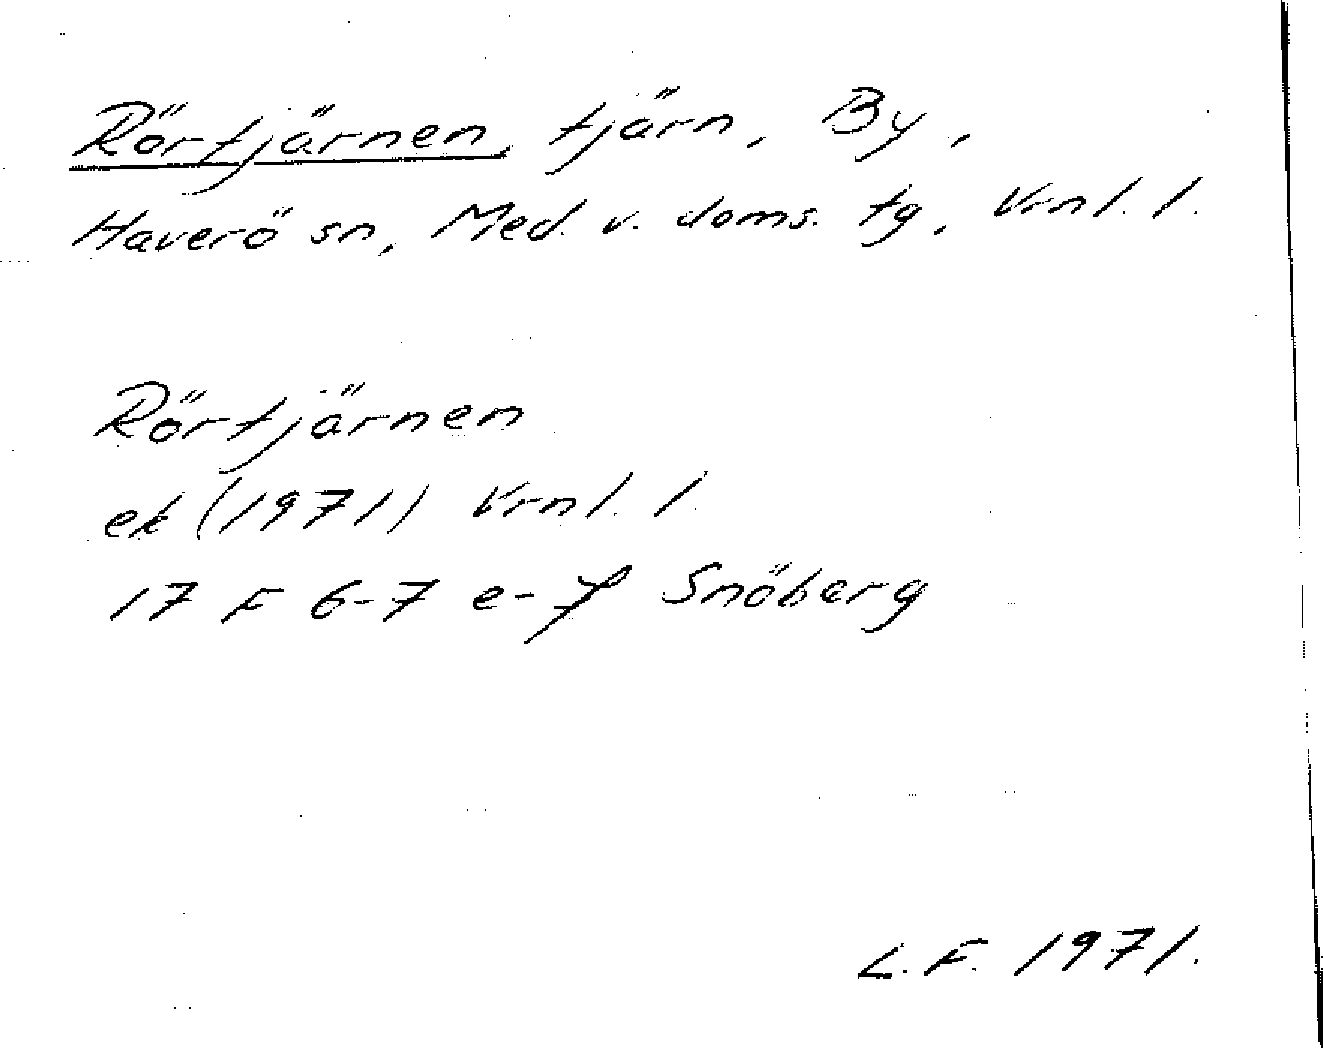 Rörtjärnen, tjärn, By,
Haverö sn, Med. v. doms. tg, Vrnl. l.
Rörtjärnen
ek (1971) Vrnl. l.
17 F 6-7 e-f Snöberg
L. F. 1971.